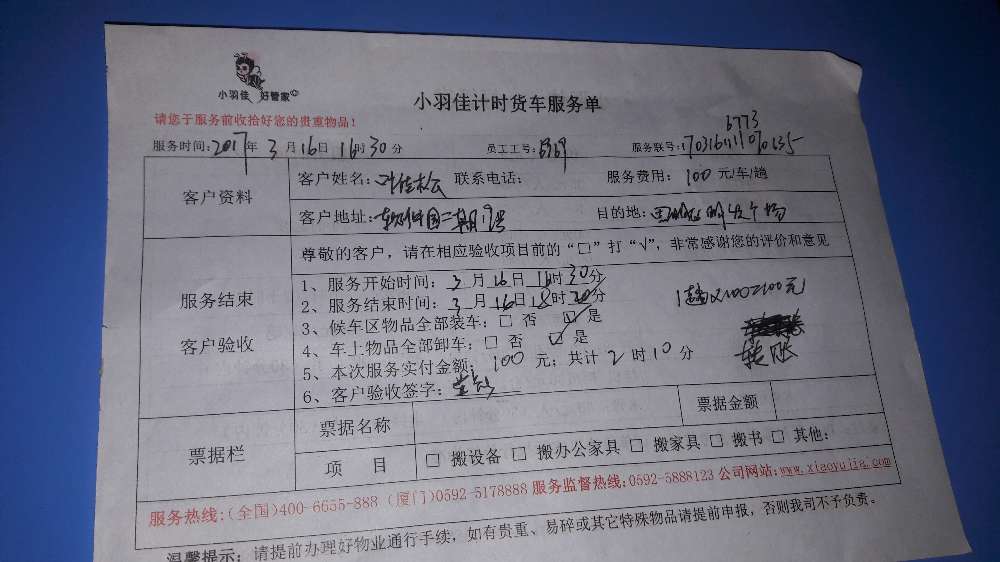 小羽佳 好管家
小羽佳计时货车服务单
请您于服务前收拾好您的贵重物品！
6773
服务时间：2017年3月16日16时30分 员工工号：6969 服务联号：
客户资料
客户姓名： 联系电话： 服务费用：100元/车/趟
客户地址：软件园二期19号 目的地：
服务结束
客户验收
尊敬的客户，请在相应验收项目前的“□”打“√”，非常感谢您的评价和意见
1、服务开始时间：3月16日16时30分
2、服务结束时间：3月16日18时分
1趟X100=100元
3、候车区物品全部装车：□ 否 ☑ 是
4、车上物品全部卸车：□ 否 ☑ 是
5、本次服务实付金额：100元；共计2时10分
转账
6、客户验收签字：
票据栏
票据名称 票据金额
项 目 □ 搬设备 □ 搬办公家具 □ 搬家具 □ 搬书 □ 其他：
服务热线：(全国)400-6655-888 (厦门)0592-5178888 服务监督热线：0592-5888123 公司网站：www.xiaoyujia.com
温馨提示：请提前办理好物业通行手续，如有贵重、易碎或其它特殊物品请提前申报，否则我司不予负责。